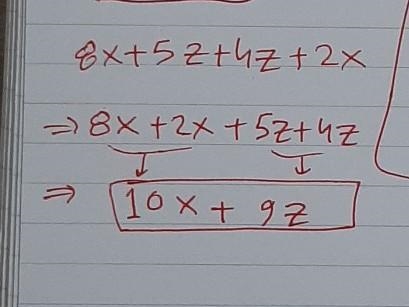 8x+5z+4z+2x
⇒ 8x+2x+5z+4z
⇒ 10x+9z